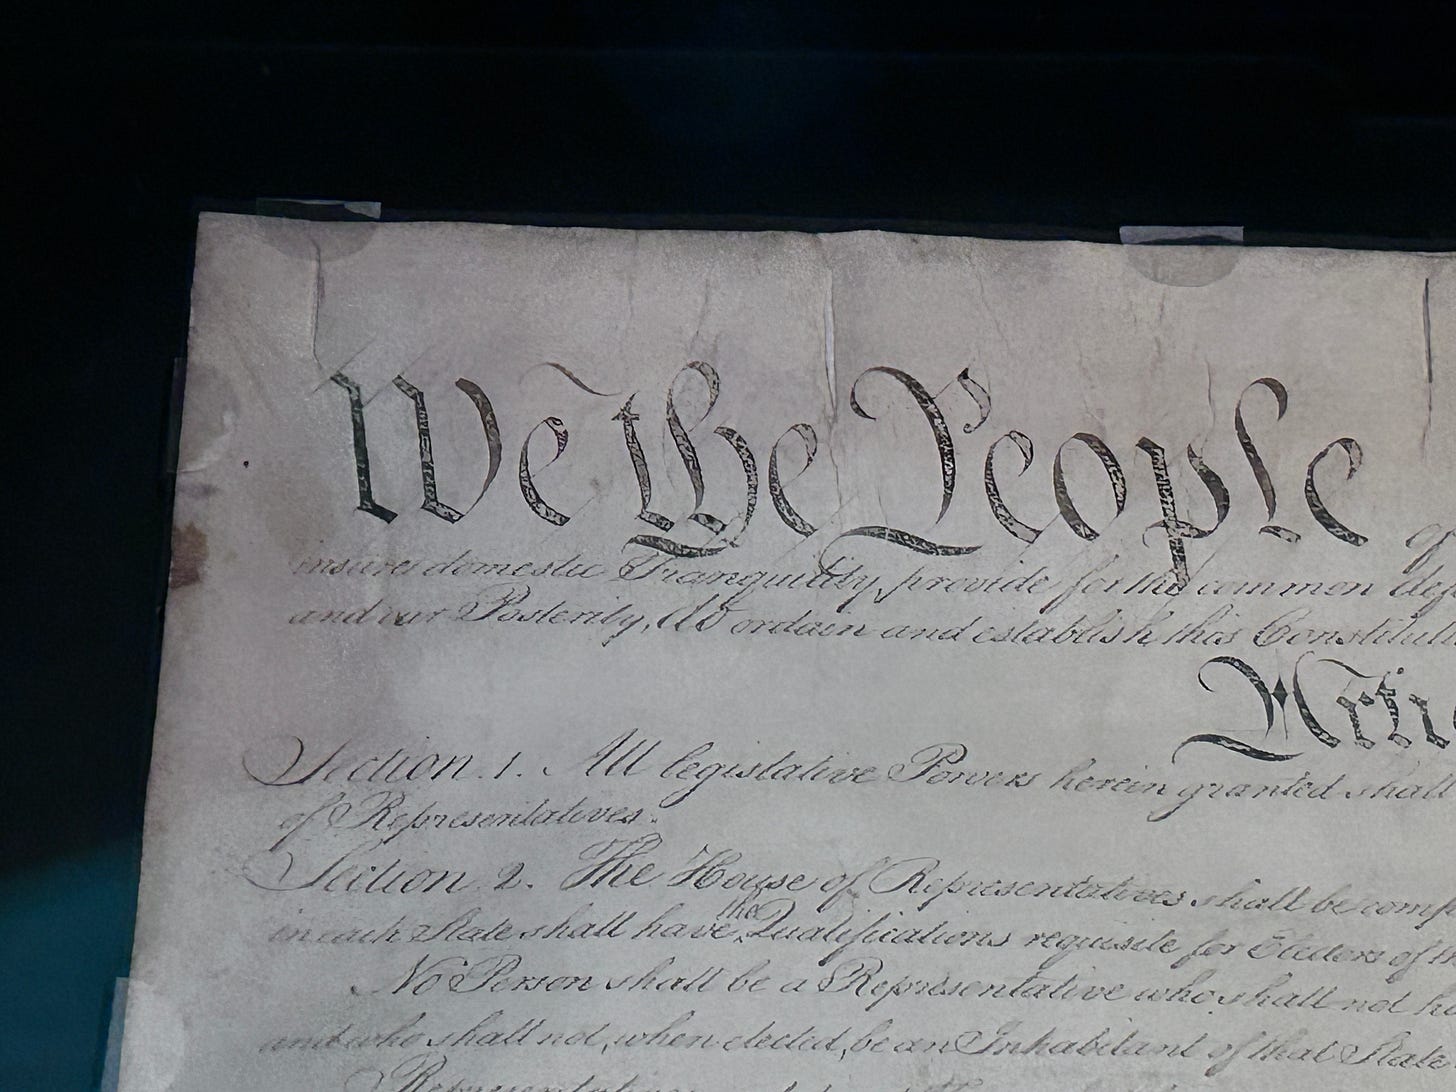 We the People
insure domestic Tranquility, provide for the common
and our Posterity, do ordain and establish this
Section. 1. All legislative Powers herein granted shall
of Representatives.
Section. 2. The House of Representatives shall be
the
in each State shall have Qualifications requisite for Electors of
No Person shall be a Representative who shall not
and who shall not, when elected, be an Inhabitant of that State